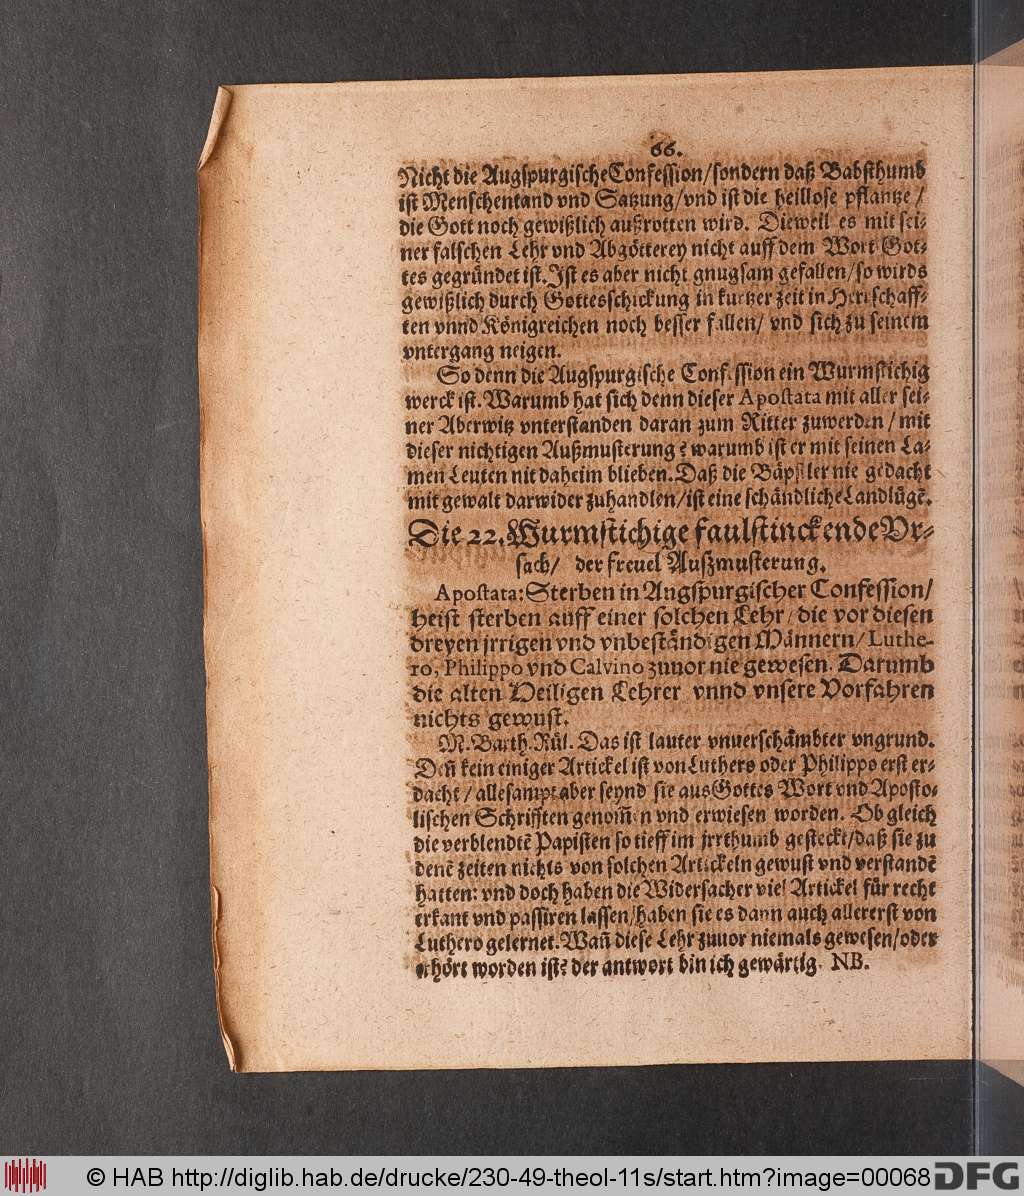 66.
Nicht die Augspurgische Confession/sondern daß Babsthumb
ist Menschentand vnd Satzung/vnd ist die heillose pflantze/
die Gott noch gewißlich außrotten wird. Dieweil es mit sei-
ner falschen Lehr vnd Abgötterey nicht auff dem Wort Got-
tes gegründet ist. Ist es aber nicht gnugsam gefallen/so wirds
gewißlich durch Gottesschickung in kurtzer zeit in Herrschaff-
ten vnnd Königreichen noch besser fallen/ vnd sich zu seinem
vntergang neigen.
So denn die Augspurgische Confession ein Wurmstichig
werck ist. Warumb hat sich denn dieser Apostata mit aller sei-
ner Aberwitz vnterstanden daran zum Ritter zuwerden/mit
dieser nichtigen Außmusterung? warumb ist er mit seinen La-
men Leuten nit daheim blieben. Daß die Bäpstler nie gedacht
mit gewalt darwider zuhandlen/ist eine schändliche Landlügē.
Die 22. Wurmstichige faulstinckende Vr-
sach/ der freuel Außmusterung.
Apostata: Sterben in Augspurgischer Confession/
heist sterben auff einer solchen Lehr/die vor diesen
dreyen jrrigen vnd vnbeständigen Männern/Luthe-
ro, Philippo vnd Calvino zuuor nie gewesen. Darumb
die alten Heiligen Lehrer vnnd vnsere Vorfahren
nichts gewust.
M. Barth. Rül. Das ist lauter vnuerschämbter vngrund.
Deñ kein einiger Artickel ist von Luthero oder Philippo erst er-
dacht/allesampt aber seynd sie aus Gottes Wort vnd Aposto-
lischen Schrifften genom̃en vnd erwiesen worden. Ob gleich
die verblendtē Papisten so tieff im jrrthumb gesteckt/daß sie zu
denē zeiten nichts von solchen Artickeln gewust vnd verstandē
hatten: vnd doch haben die Widersacher viel Artickel für recht
erkant vnd passiren lassen/haben sie es dann auch allererst von
Luthero gelernet. Wañ diese Lehr zuuor niemals gewesen/oder
erhört worden ist? der antwort bin ich gewärtig. NB.
© HAB http://diglib.hab.de/drucke/230-49-theol-11s/start.htm?image=00068
DFG